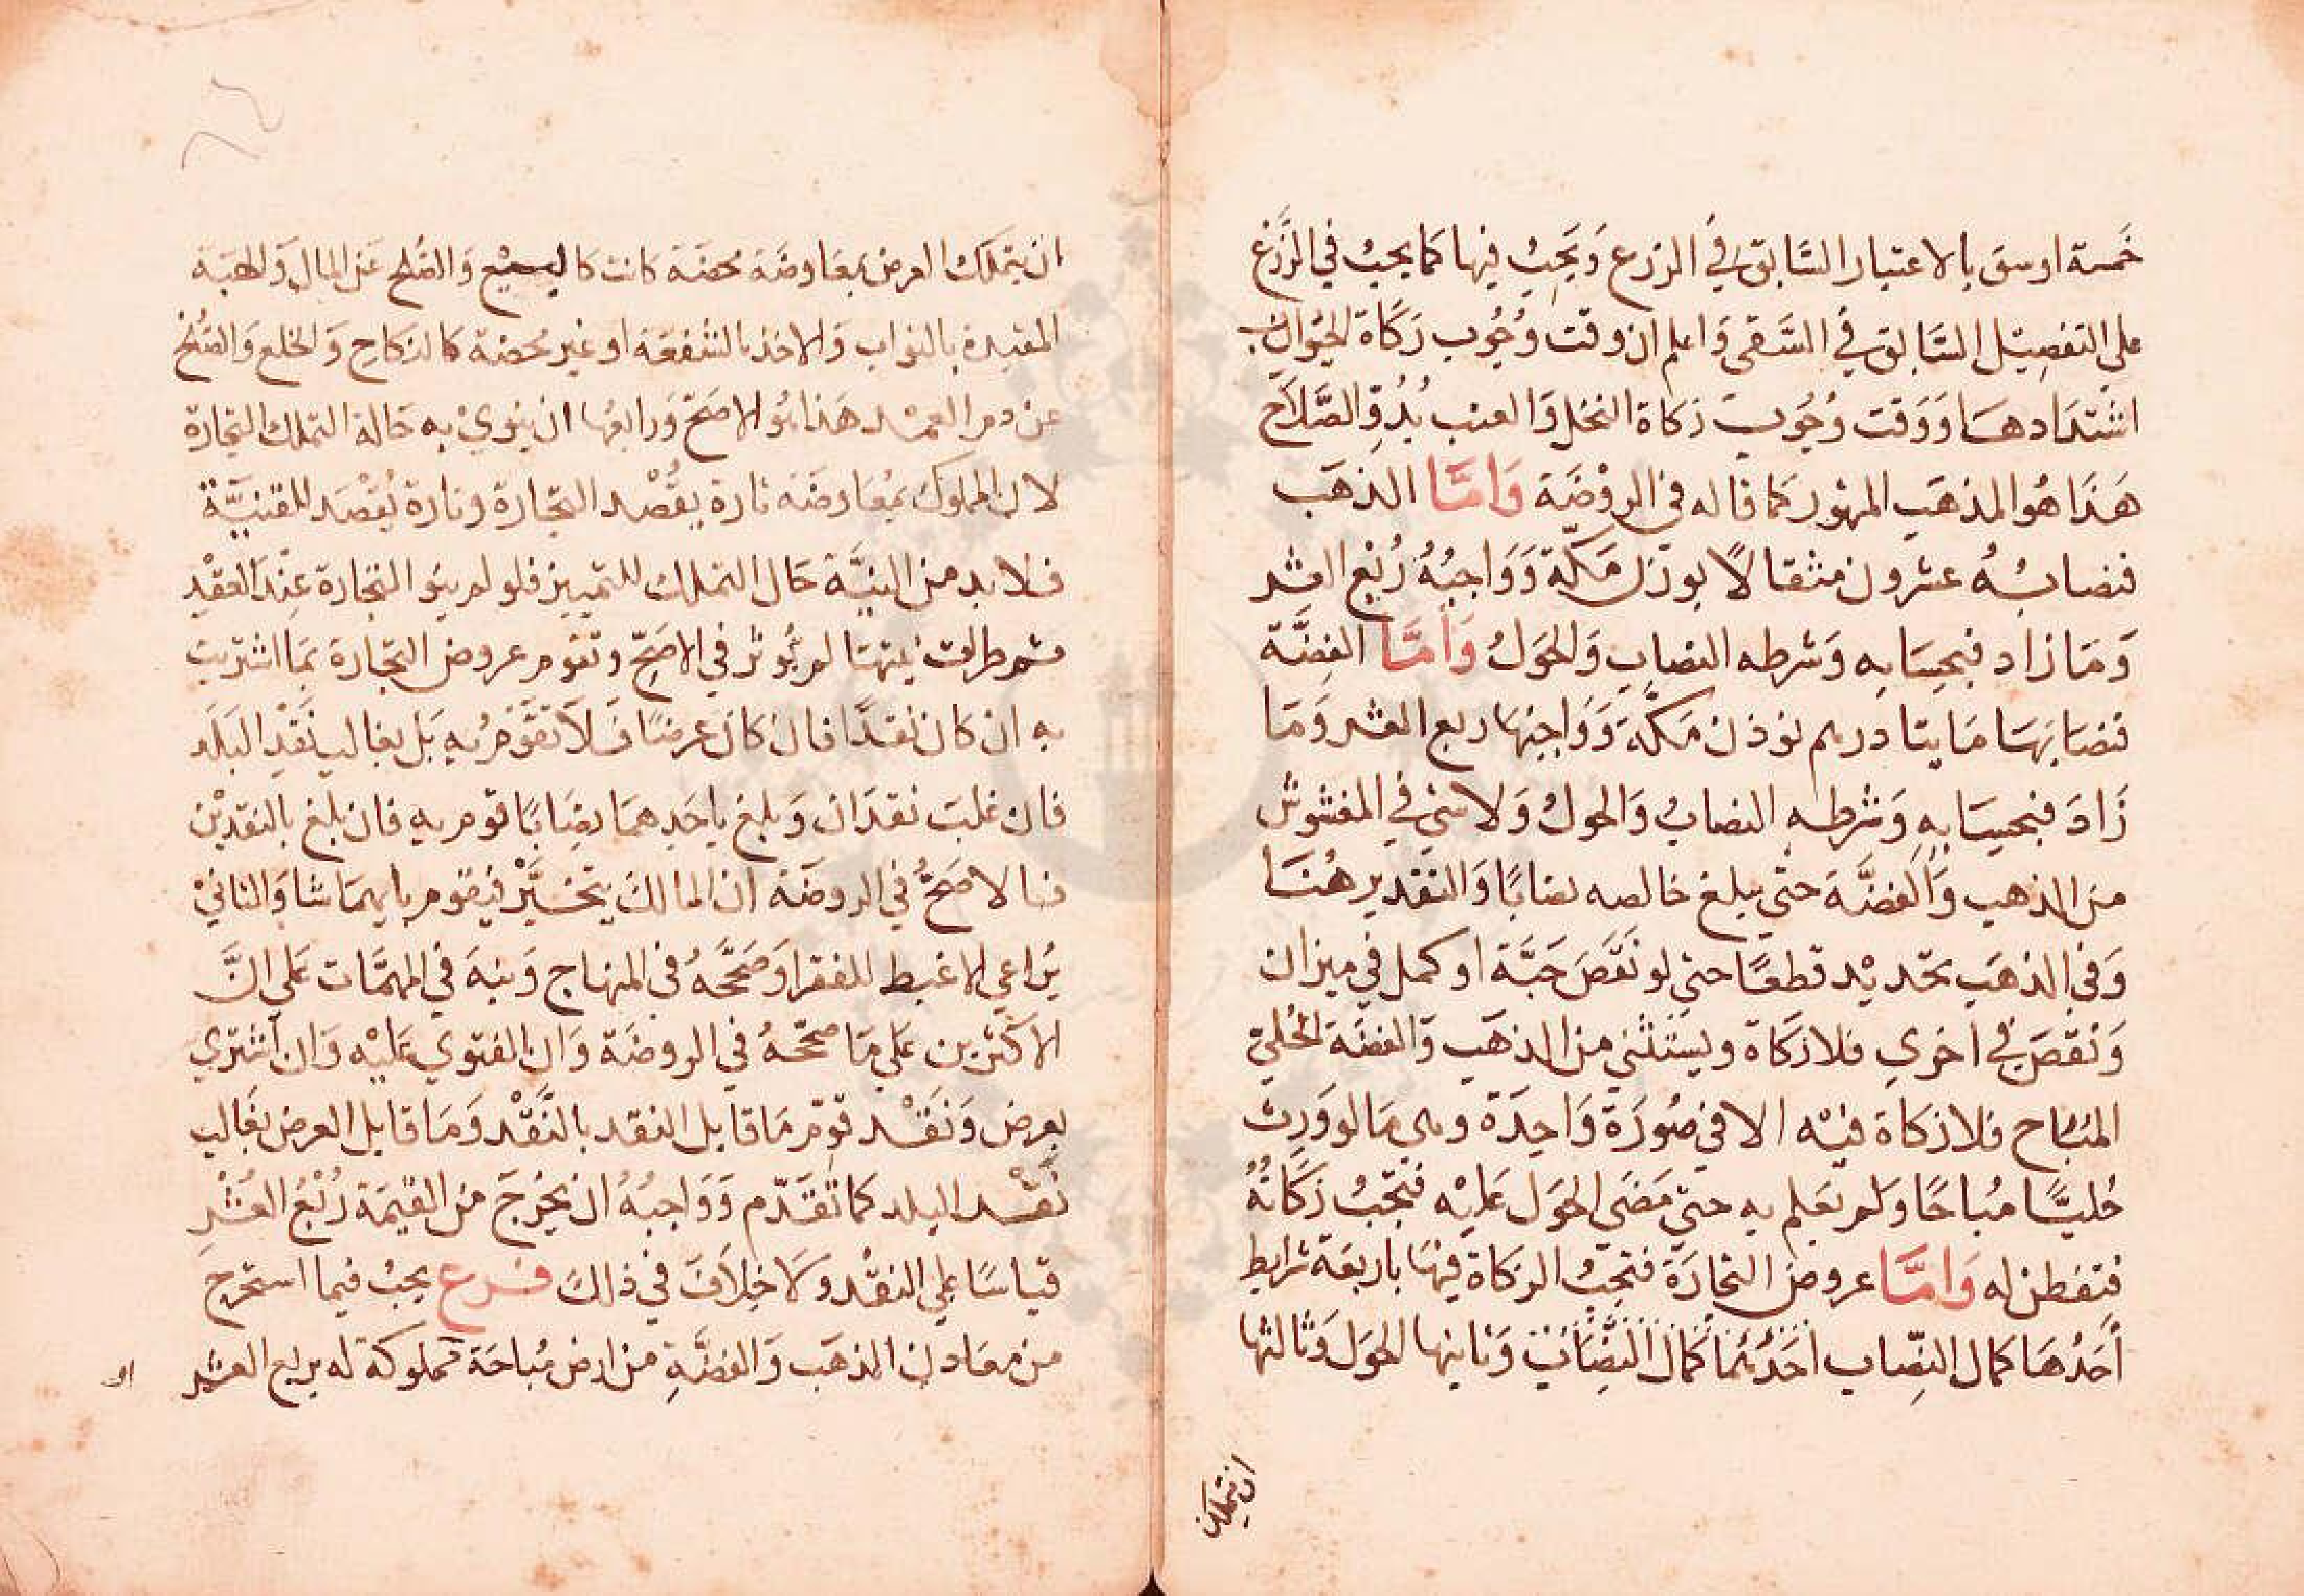 خمسة اوسق بالاعتبار السابق في الزرع وَيَجِبُ فيها كما يجبُ في الزَّرْع
على التفصِيْل السَّابق في السَّقى وَاعلم ان وقت وُجُوب زكَاة الحبوَب
اشتدَادهَا وَوَقت وُجُوبِ زكاة النخل وَالعنب بُدُوِّ الصَّلَاح
هَذَا هُو المذهَب المشهور كما قاله في الروْضَة وَامَّا الذهَب
فنصابُهُ عشرون مثقالًا بوزن مَكّة وَوَاجبُهُ رُبْع العشر
وَمَا زاد فبحسَابه وَشرطه النصاب وَالحَولُ وَامَّا الفِضَّة
فنصَابهَا مَايتا درهم بوزن مَكّة وَوَاجبُهَا ربع العشر وَمَا
زَادَ فبحسَابهِ وَشرطه النصابُ وَالحولُ وَلا شي في المغشوش
من الذهب وَالفضَّة حتى يبلغ خالصه نصابًا وَالتقدير هُنَا
وَفي الذهَب تحديْد قطعًا حتى لو نَقَصَ حَبَّة او كمل في ميزان
وَنقصَ في اخرى فلا زكَاة ويستثنى من الذهَب وَالفضَة الحُلي
المبَاح فلا زكاة فيْه الا في صُورَة وَاحِدَة وهي مَا لو وَرِث
حُليًّا مُبَاحًا وَلم يَعلم به حتى مَضَى الحَول عَليْه فتجبُ زَكَاتُهُ
فتفطن له وَامَّا عروض التجارَة فتجبُ الزكاة فيهَا باربعَة شرايط
أَحَدُهَا كمال النِّصاب احَدُهُما كمَال النِّصَاب وَثانيها الحَول وَثالثها
ان يتملك
ان يتملكَ العرض بمعَاوضَة محضَة كانت كالبيع وَالصُلح عَن المال وَالهبَة
المقيدة بالثواب وَالاخذ بالشفعَة او غير مُحضة كالنكاح وَالخلع وَالصُلح
عن دم العمْد هَذا هُو الاصَح وَرابعُها ان ينويْ به حَالة التملك التجارة
لان المملوك بمُعَاوضَة تارة يقْصد التجارة وتارة يُقْصَد للقنيَّة
فلا بد من النيَّة حَال التملك للتمييز فلو لم ينو التجارة عِنْدَ العقْدِ
ثم طرات نيتها لم يُوثر في الاصَحِّ وتقوم عروض التجارة بمَا اشتريت
به ان كان نقدًا فان كانَ عَرضًا فَلَا تقَوَّمُ به بَل بغالب نَقْد البَلَد
فان غلبَ نقدَان وَبلغ باحَدِهمَا نِصَابًا قوم به فان بلغ بالنقديْن
فالاصَحُّ في الروضَة ان المالكَ يَتَخيَّرْ فيقوم بايهمَا شا وَالثانيْ
يُراعي الاغبط للفقرا وَصَحَّحَهُ في المنهاج وَنبهَ في المهمَّات عَلى انَّ
الاكثرين عَلى مَا صححَهُ في الروضَة وَان الفتوى عَليْه وَان اشتري
بعرض وَنقْد قوّم مَا قابل النقد بالنَّقْد وَمَا قابل العرض بغَالب
نقْد البلد كما تَقَدّم وَوَاجبُهُ ان يُخْرَجَ من القيمَة رُبْعُ العُشْرِ
قياسًا على النقْد وَلَا خِلَافَ في ذلكَ فرع يجبُ فيما استخرج
من معَادِن الذهَب وَالفضَّةِ من ارض مُبَاحَة مملوكَة له ربع العشر